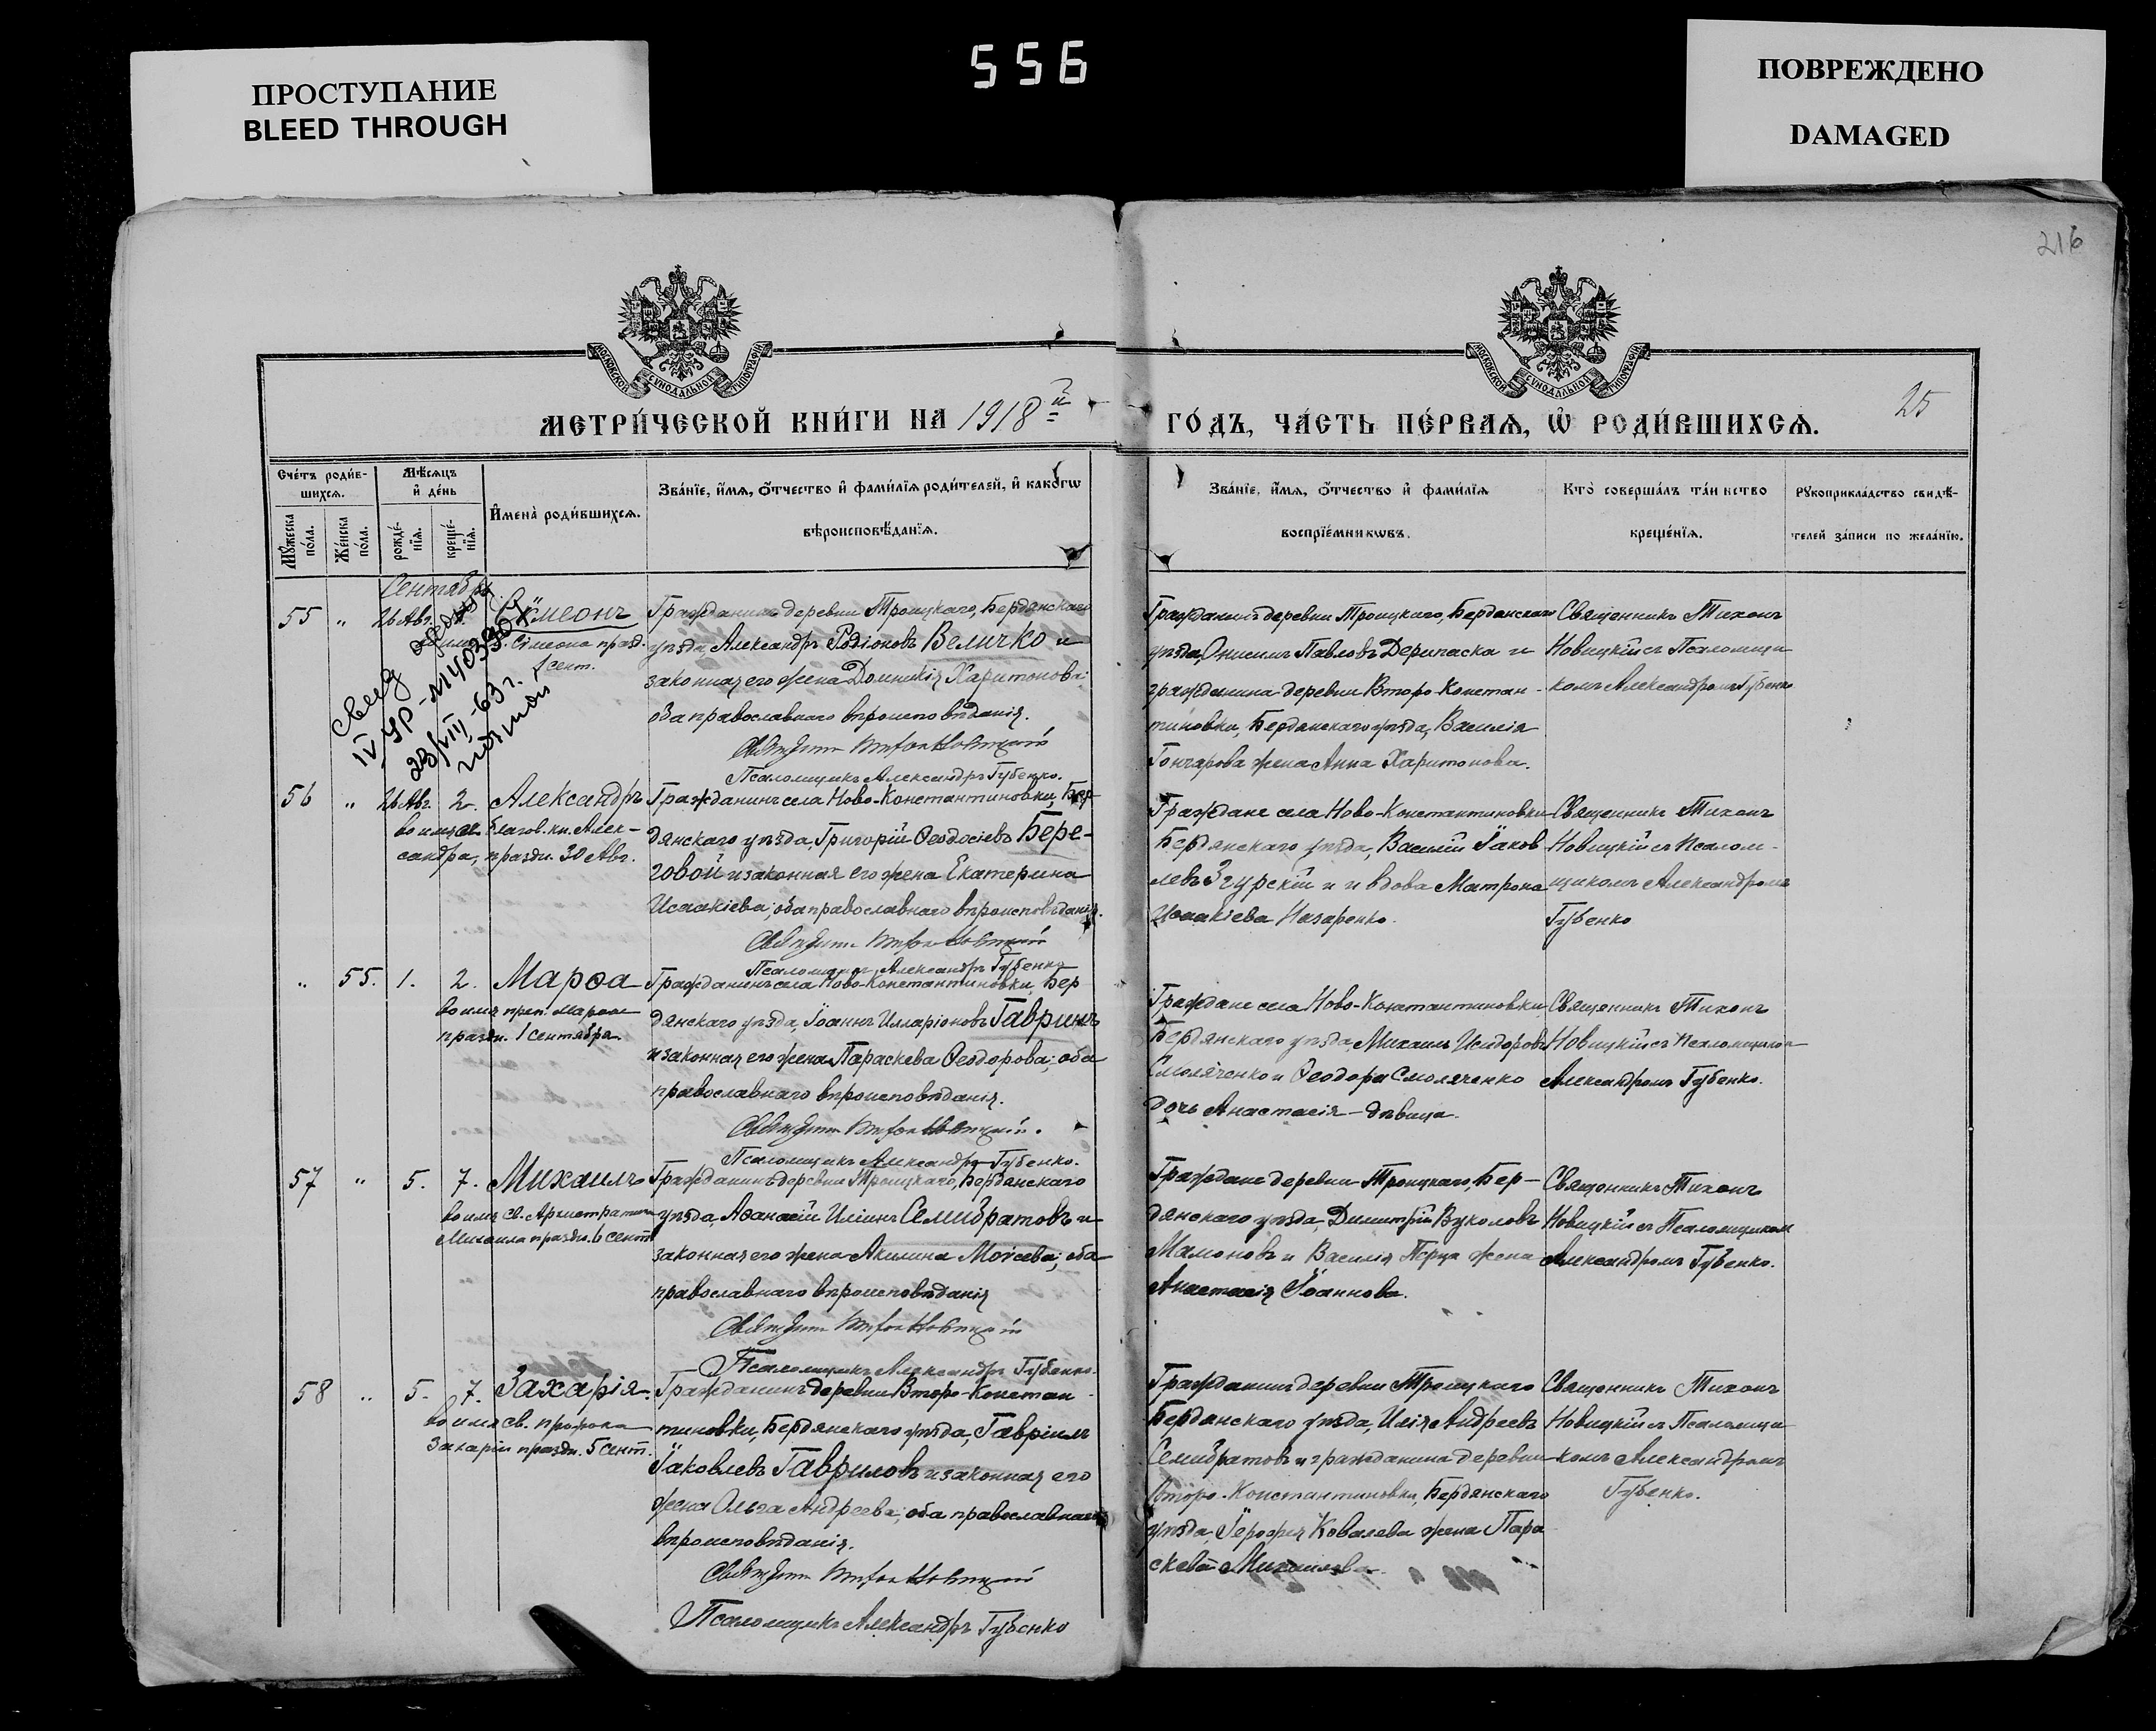 ПРОСТУПАНИЕ
BLEED THROUGH
556
ПОВРЕЖДЕНО
DAMAGED
216
МОСКОВСКОЙ СѴНОДАЛЬНОЙ ТИПОГРАФІИ
МОСКОВСКОЙ СѴНОДАЛЬНОЙ ТИПОГРАФІИ
МЕТРИ́ЧЕСКОЙ КНИ́ГИ НА 1918й
ГО́ДЪ, ЧА́СТЬ ПЕ́РВАѦ, Ѡ҆ РОДИ́ВШИХСѦ.
25
Сче́тъ роди́в-
шихсѧ.
Мꙋ́жеска по́ла.
Же́нска по́ла.
Мѣ́сѧцъ
и҆ де́нь
рожде́-
нїѧ.
креще́-
нїѧ.
И҆мена̀ роди́вшихсѧ.
Зва́нїе, и҆́мѧ, ѻ҆́тчество и҆ фами́лїѧ роди́телей, и҆ како́гѡ
вѣроисповѣ́данїѧ.
Зва́нїе, и҆́мѧ, ѻ҆́тчество и҆ фами́лїѧ
воспрїе́мникѡвъ.
Кто̀ соверша́лъ та́инство
креще́нїѧ.
Рꙋкоприкла́дство свидѣ́-
телей за́писи по жела́нїю.
Сентябрь
55 " 26 Авг.
Сѵмеонъ
Сімеона празд.
1 сент.
свид
IV ЯР-М140339
23/VIII-63 г.
Гражданинъ деревни Троицкаго, Бердянскаго
уѣзда, Александръ Родіоновъ Величко и
законная его жена Домникія Харитонова;
оба православнаго вѣроисповѣданія.
Священникъ Тихон Новицкій
Псаломщикъ Александръ Губенко.
Гражданинъ деревни Троицкаго, Бердянскаго
уѣзда, Онисимъ Павловъ Дерипаска и
гражданина деревни Второ-Констан-
тиновки, Бердянскаго уѣзда, Василія
Гончарова жена Анна Харитонова.
Священникъ Тихонъ
Новицкій съ Псаломщи-
комъ Александромъ Губенко
56 " 26 Авг. 2. Александръ
во имя св. благов. кн. Алек-
сандра, праздн. 30 Авг.
Гражданинъ села Ново-Константиновки, Бер-
дянскаго уѣзда, Григорій Ѳеодосіевъ Бере-
говой и законная его жена Екатерина
Исаакіева; оба православнаго вѣроисповѣданія.
Священникъ Тихон Новицкій
Псаломщикъ Александръ Губенко
Граждане села Ново-Константиновки
Бердянскаго уѣзда, Василій Іаков-
левъ Згурскій и вдова Матрона
Исаакіева Назаренко.
Священникъ Тихонъ
Новицкій съ Псалом-
щикомъ Александромъ
Губенко
" 55. 1. 2. Марѳа
во имя преп. Марѳы
праздн. 1 сентября.
Гражданинъ села Ново-Константиновки, Бер
дянскаго уѣзда, Іоаннъ Илларіоновъ Гавринъ
и законная его жена Параскева Ѳеодорова; оба
православнаго вѣроисповѣданія.
Священникъ Тихон Новицкій.
Псаломщикъ Александръ Губенко.
Граждане села Ново-Константиновки
Бердянскаго уѣзда, Михаилъ Исидоровъ
Смоляченко и Ѳеодора Смоляченко
дочь Анастасія - дѣвица.
Священникъ Тихонъ
Новицкій съ Псаломщикомъ
Александромъ Губенко.
57 " 5. 7. Михаилъ
во имя св. Архистратига
Михаила праздн. 6 сент.
Гражданинъ деревни Троицкаго, Бердянскаго
уѣзда, Аѳанасій Иліинъ Семибратовъ и
законная его жена Акилина Моѵсеева; оба
православнаго вѣроисповѣданія
Священникъ Тихон Новицкій
Псаломщикъ Александръ Губенко.
Граждане деревни Троицкаго, Бер-
дянскаго уѣзда, Димитрій Вуколовъ
Мамоновъ и Василія Перца жена
Анастасія Іоаннова.
Священникъ Тихонъ
Новицкій съ Псаломщикомъ
Александромъ Губенко.
58 " 5. 7. Захарія
во имя св. пророка
Захаріи праздн. 5 сент.
Гражданинъ деревни Второ-Констан-
тиновки, Бердянскаго уѣзда, Гавріилъ
Іаковлевъ Гавриловъ и законная его
жена Ольга Андреева; оба православнаго
вѣроисповѣданія.
Священникъ Тихон Новицкій
Псаломщикъ Александръ Губенко
Гражданинъ деревни Троицкаго
Бердянскаго уѣзда, Илія Андреевъ
Семибратовъ и гражданина деревни
Второ-Константиновки, Бердянскаго
уѣзда, Іероѳея Ковалева жена Пара
скева Михаилова.
Священникъ Тихонъ
Новицкій съ Псаломщи-
комъ Александромъ
Губенко.